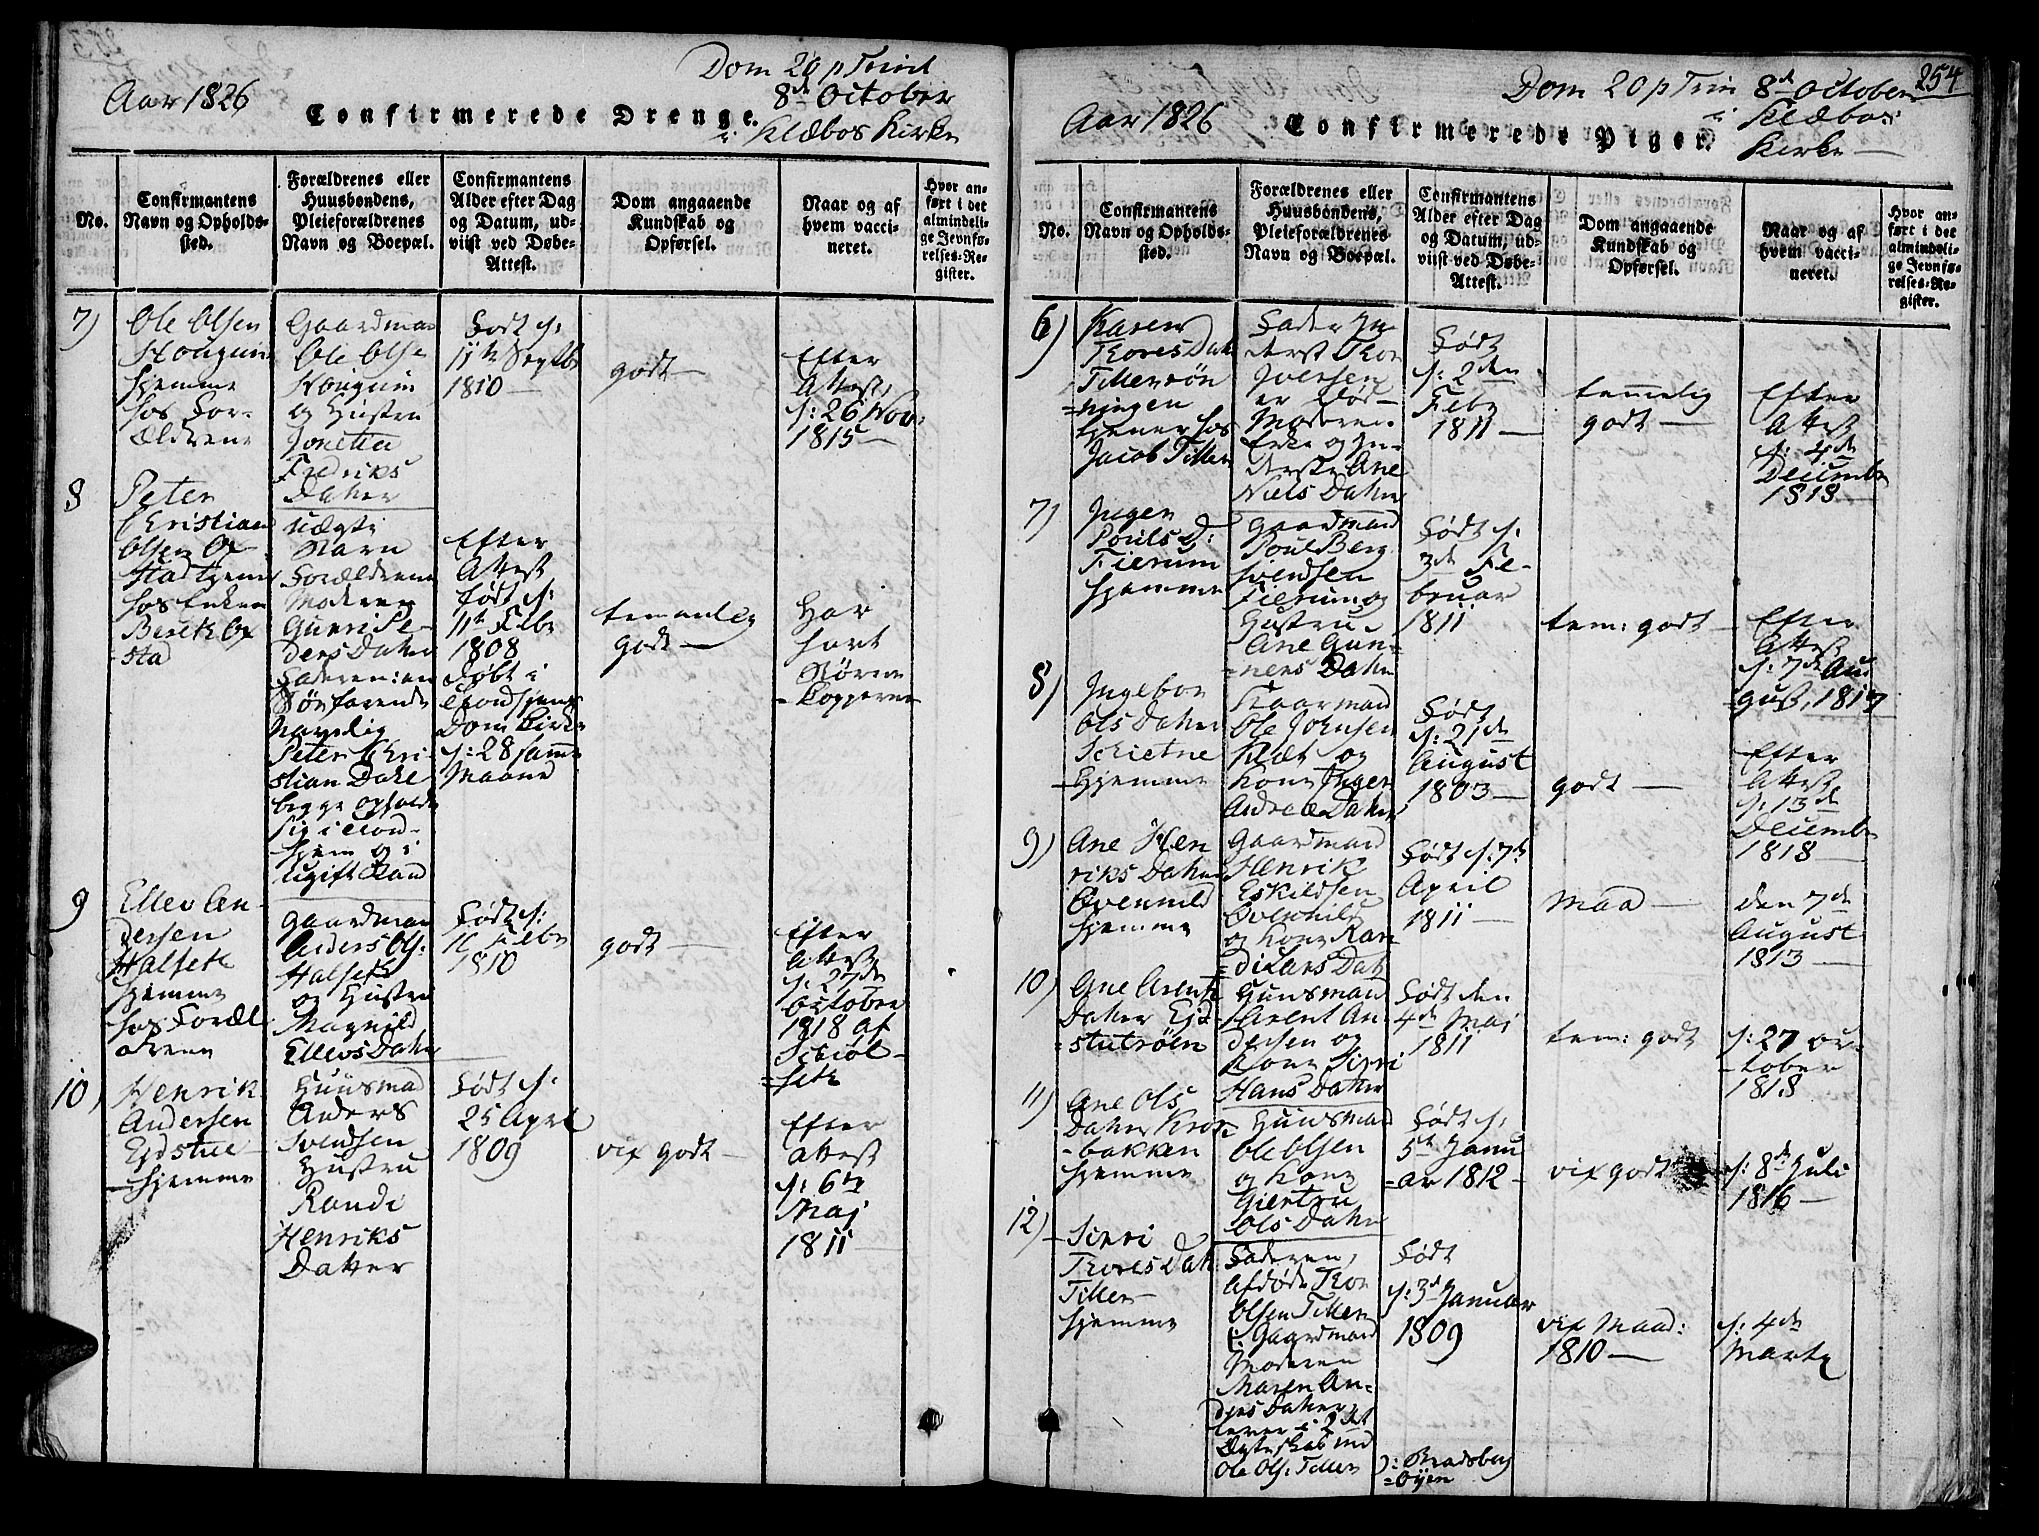 Aar 1826
Confirmerede Drenge.
Dom 20 p Trinit
8de October
i Klæbos Kirke
No.
Confirmantens
Navn og Opholds-
sted.
Forældrenes eller
Huusbondens,
Pleieforældrenes
Navn og Boepæl.
Confirmantens
Alder efter Dag
og Datum, ud-
viist ved Døbe-
Attest.
Dom angaaende
Kundskab og
Opførsel.
Naar og af
hvem vacci-
neret.
Hvor an-
ført i det
almindeli-
ge Jevnfø-
relses-Re-
gister.
7)
Ole Olsen
hjemme
hos For-
ældrene
Gaardman
Ole Olse
og Hustru
Jonetta
Fredriks
Datter
Født d:
11te Septbr
1810
godt
Efter
Attest,
d: 26 Nov:
1815
8
Peter
Christian
Olsen Ox-
stad tjener
hos Enken
Berit Ox
stad
uægte
Barn
Forældrene
Moderen
Guuri Pe-
ders Datter
Faderen: en
Søefarende
navnlig
Peter Chri
stian Dahl
begge opholdt
sig i Trond-
hjem og i
Ugift Stand
Efter
Attest
født d:
11te Febr
1808
døbt i
Trondhjems
Dom Kirke
d: 28 samme
Maaned
temmelig
godt
Har
havt
Børne
-Kopperne
9
Ellev An-
dersen
Halseth
hjemme
hos Foræl-
drene
Gaardman
Anders Ols:
Halseth
og Hustru
Magnild
Ellevs Datter
Født d:
16 Febr
1810
godt
Efter
Attest
d: 27de
October
1818 af
Schiøl-
=seth
10)
Henrik
Andersen
Eidstue
hjemme
Huusmad
Anders
Svendsen
Hustru
Randi
Henriks
Datter
Født d:
25 April
1809
vix godt
Efter
Attest
d: 6te
Maj
1811
254
Aar 1826
Confirmerede Piger.
Dom 20 p Trin 8de October
i Klæbos
Kirke
No.
Confirmantens
Navn og Opholds-
sted.
Forældrenes eller
Huusbondens,
Pleieforældrenes
Navn og Boepæl.
Confirmantens
Alder efter Dag
og Datum, ud-
viist ved Døbe-
Attest.
Dom angaaende
Kundskab og
Opførsel.
Naar og af
hvem vacci-
neret.
Hvor an-
ført i det
almindeli-
ge Jevnfø-
relses-Re-
gister.
6)
Karen
Thores Dat
Tillerrøn
=ningen
tjener hos
Jacob Tiller
Fader In
derst Thor
Iversen
er død
Moderen
Enke og In-
derste Ane
Niels Datter
Født
d: 2den
Febr
1811
temelig
godt
Efter
Attest
d: 4de
Decembr
1818
7)
Ingen
Pouls D:
Fierum
hjemme
Gaardmand
Poul Berg
Svendsen
Fierum og
Hustru
Ane Gun-
=ners Datter
Født d:
3de Fe-
bruar
1811
tem: godt
Efter
Attest
d: 7de Au
gust, 1819
8)
Ingebor
Ols Datter
Schietne
hjemme
Gaarmand
Ole Johnsen
Slæt og
Kone Inger
Andreæ Datter
Født
d: 21de
August
1803
godt
Efter
Attest
d: 13de
Decembr
1818
9)
Ane Hen
riks Datter
Qvenild
hjemme
Gaardmand
Henrik
Eskildsen
Qvenild
og Kone Kari
=di Lars Dat
Født d: 7de
April
1811
Maad
den 7de
August
1813
10)
Ane Arent
Datter Ejd
=stutrøen
Huusmand
Arent An
dersen og
Kone Siri
Hans Datter
Født den
4de Maj
1811
tem: godt
d: 27 oc-
-tober
1818
11)
Ane Ols
Datter Krog
-bakken
hjemme
Huusmand
Ole Olsen
og Kone
Giertru
Ols Datter
Født d:
5te Janu
=ar 1812
vix godt
d: 8de Juli
1816
12)
Siri
Thores Dat
Tiller
hjemme
Faderen,
Afdøde Thor
Olsen Tiller
f. Gaardmand
Moderen
Maren An-
ders Datter
lever i 2det
Ægteskab med
Ole Ols: Tiller
Født
d: 3de Januar
1809
vix Maad:
1810
d: 4de
Marts
): Bradsberg
=Øyen